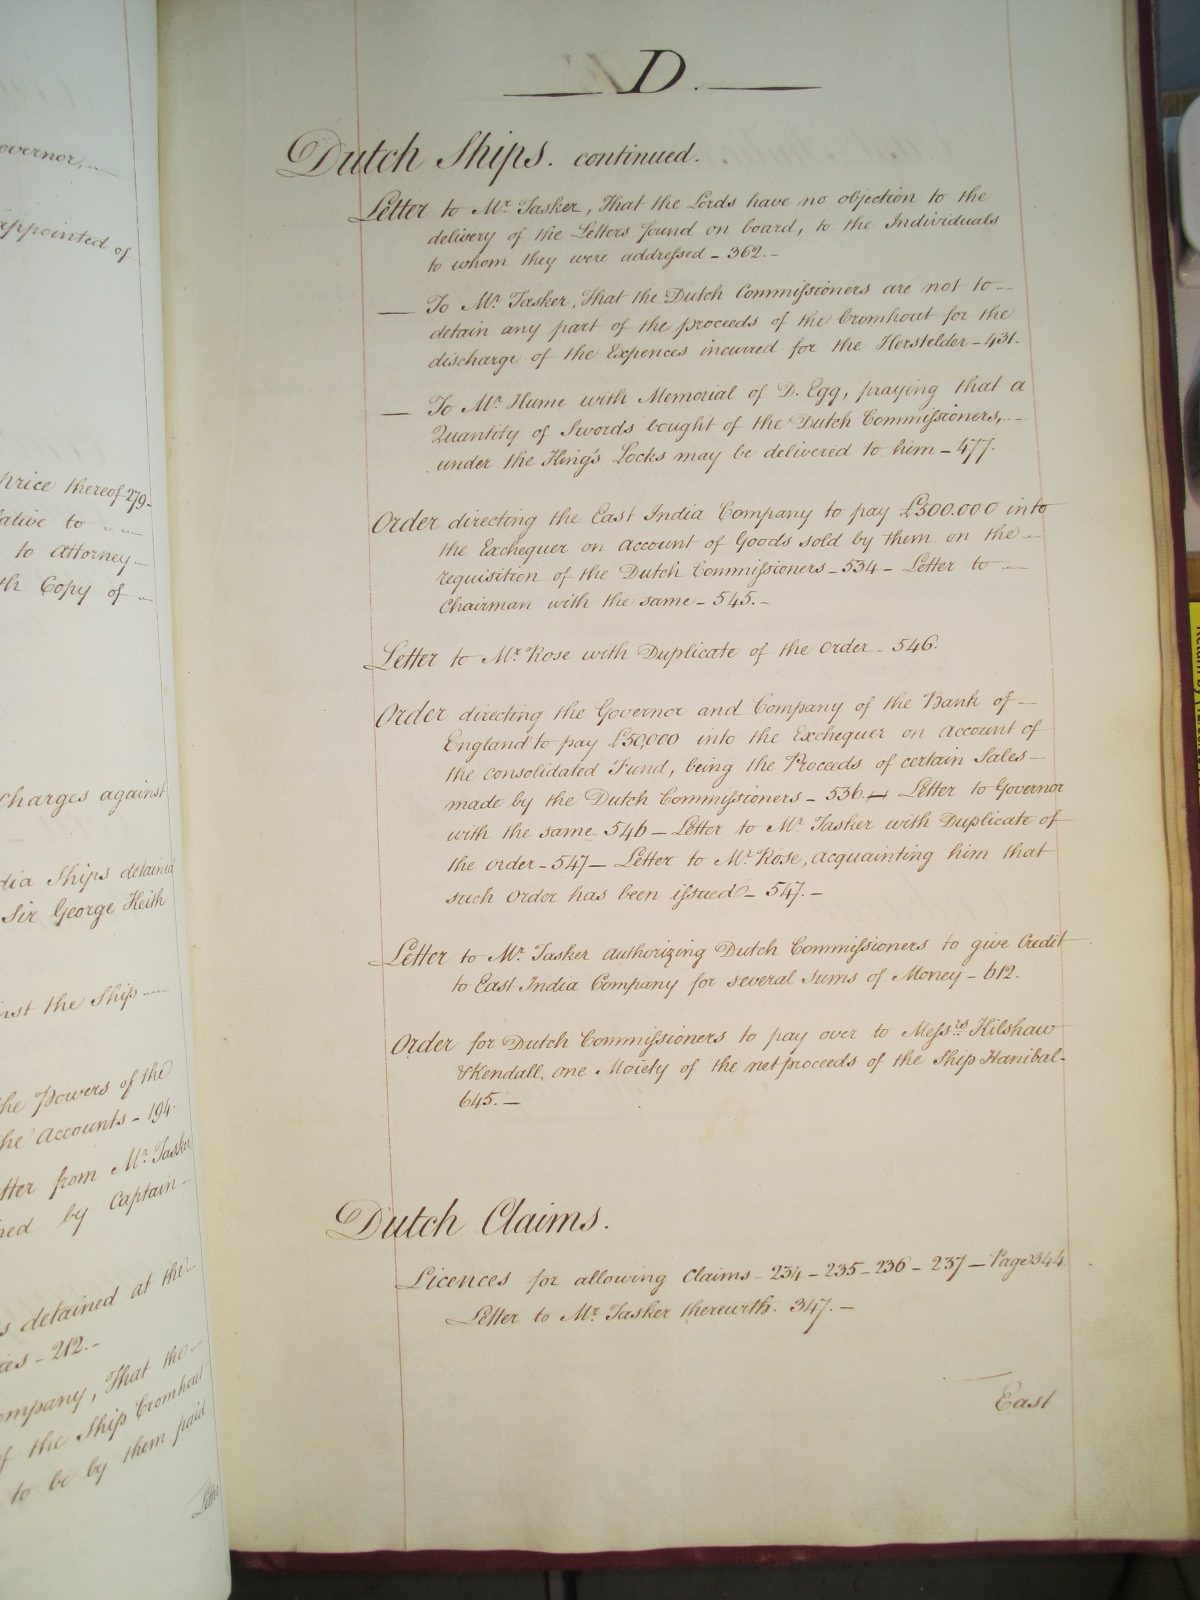 overnor,
appointed of
price thereof 279-
lative to
to Attorney
th Copy of
Charges against
dia Ships detained
Sir George Keith
inst the Ship
the Powers of the
the Accounts - 194
tter from Mr. Tasker
ned by Captain
s detained at the
ies - 212.-
ompany, That the
of the Ship Cromhout
to be by them paid
D.
Dutch Ships. continued.
Letter to Mr. Tasker, That the Lords have no objection to the
delivery of the Letters found on board, to the Individuals
to whom they were addressed - 362.-
— To Mr. Tasker, That the Dutch Commissioners are not to —
detain any part of the proceeds of the Cromhout for the
discharge of the Expences incurred for the Herstelder - 431.
— To Mr. Hume with Memorial of D. Egg, praying that a
Quantity of Swords bought of the Dutch Commissioners, —
under the King's Locks may be delivered to him - 477.
Order directing the East India Company to pay £300.000 into
the Exchequer on Account of Goods sold by them on the —
requisition of the Dutch Commissioners - 534 - Letter to —
Chairman with the same - 545.-
Letter to Mr. Rose with Duplicate of the order - 546.
Order directing the Governor and Company of the Bank of —
England to pay £50,000 into the Exchequer on Account of
the consolidated Fund, being the Proceeds of certain Sales —
made by the Dutch Commissioners - 536. — Letter to Governor
with the same 546 — Letter to Mr. Tasker with Duplicate of
the order - 547 — Letter to Mr. Rose, acquainting him that
such order has been issued - 547. —
Letter to Mr. Tasker authorizing Dutch Commissioners to give Credit
to East India Company for several sums of Money - 612.
Order for Dutch Commissioners to pay over to Messrs Kilshaw
& Kendall, one Moiety of the net proceeds of the Ship Hanibal-
645. —
Dutch Claims.
Licences for allowing Claims - 234 - 235 - 236 - 237 — Page 344
Letter to Mr. Tasker therewith. 347. —
East